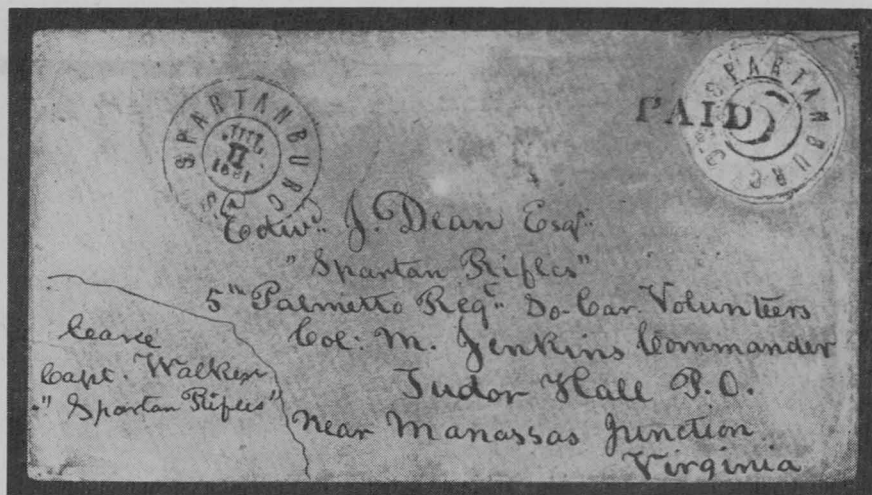 SPARTANBURG S.C.
JUL
11
1861
PAID
SPARTANBURG S.C.
5
Edwd. J. Dean Esqr.
"Spartan Rifles"
5th Palmetto Regt. So. Car. Volunteers
Col: M. Jenkins Commander
Tudor Hall P.O.
Near Manassas Junction
Virginia
Care
Capt. Walker
"Spartan Rifles"